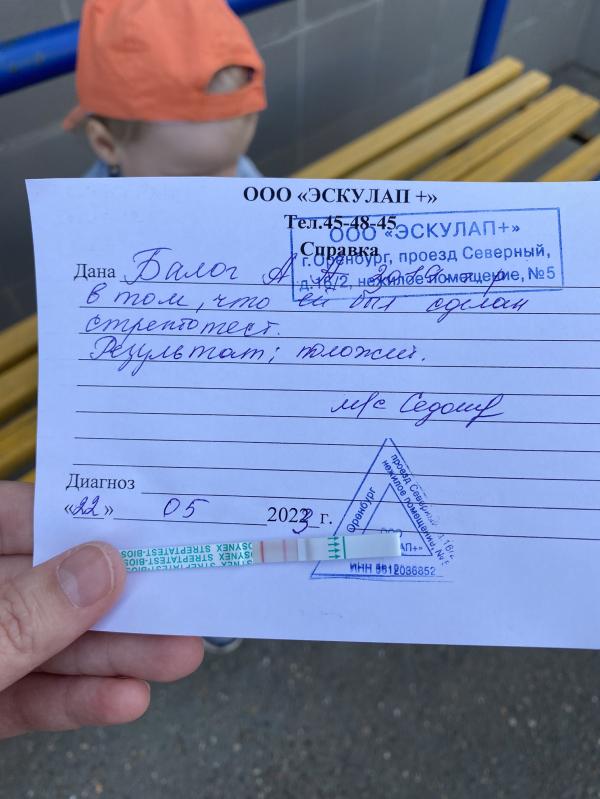 ООО «ЭСКУЛАП +»
Тел.45-48-45
Справка
ООО «ЭСКУЛАП+»
г.Оренбург, проезд Северный,
д.16/2, нежилое помещение, №5
Дана Балог А 2019 г.р
в том, что ей был сделан
стрептотест.
Результат: положит.
м/с
Диагноз
«22» 05 2023 г.
Оренбург
проезд Северный, д.16/2
нежилое помещение, №5
ООО
ИНН 5612036852
SYNEX STREPTATEST-BIOS
OSYNEX STREPTATEST-BIOS